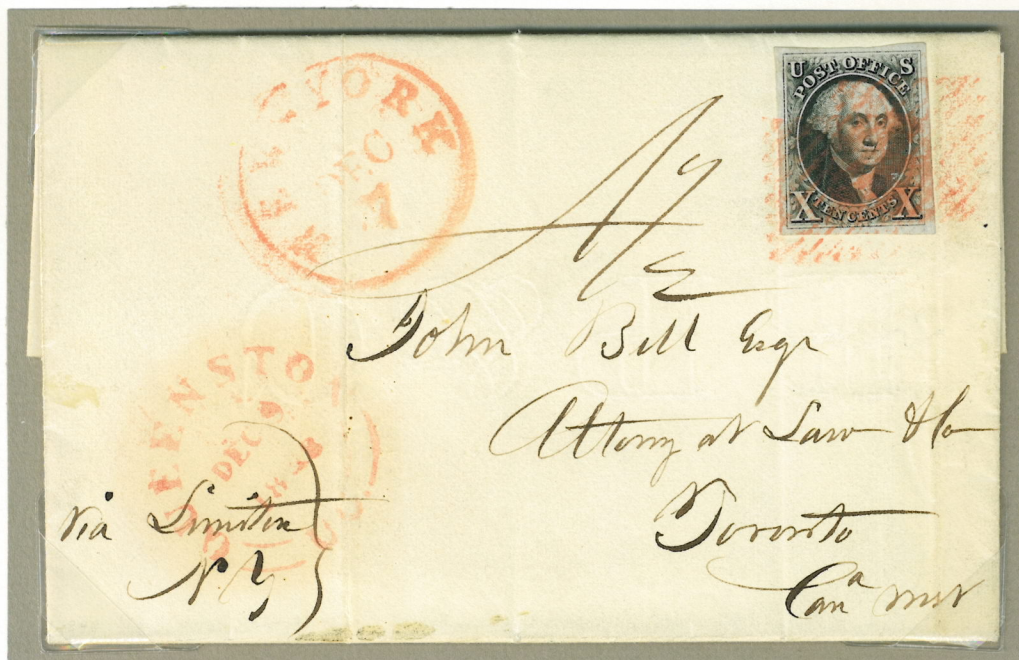 U S
POST OFFICE
X TEN CENTS X
NEW YORK
DEC
7
John Bell Esqr
Attorny at Law &c
Toronto
Cana West
QUEENSTON
DEC 9
via
N.Y.